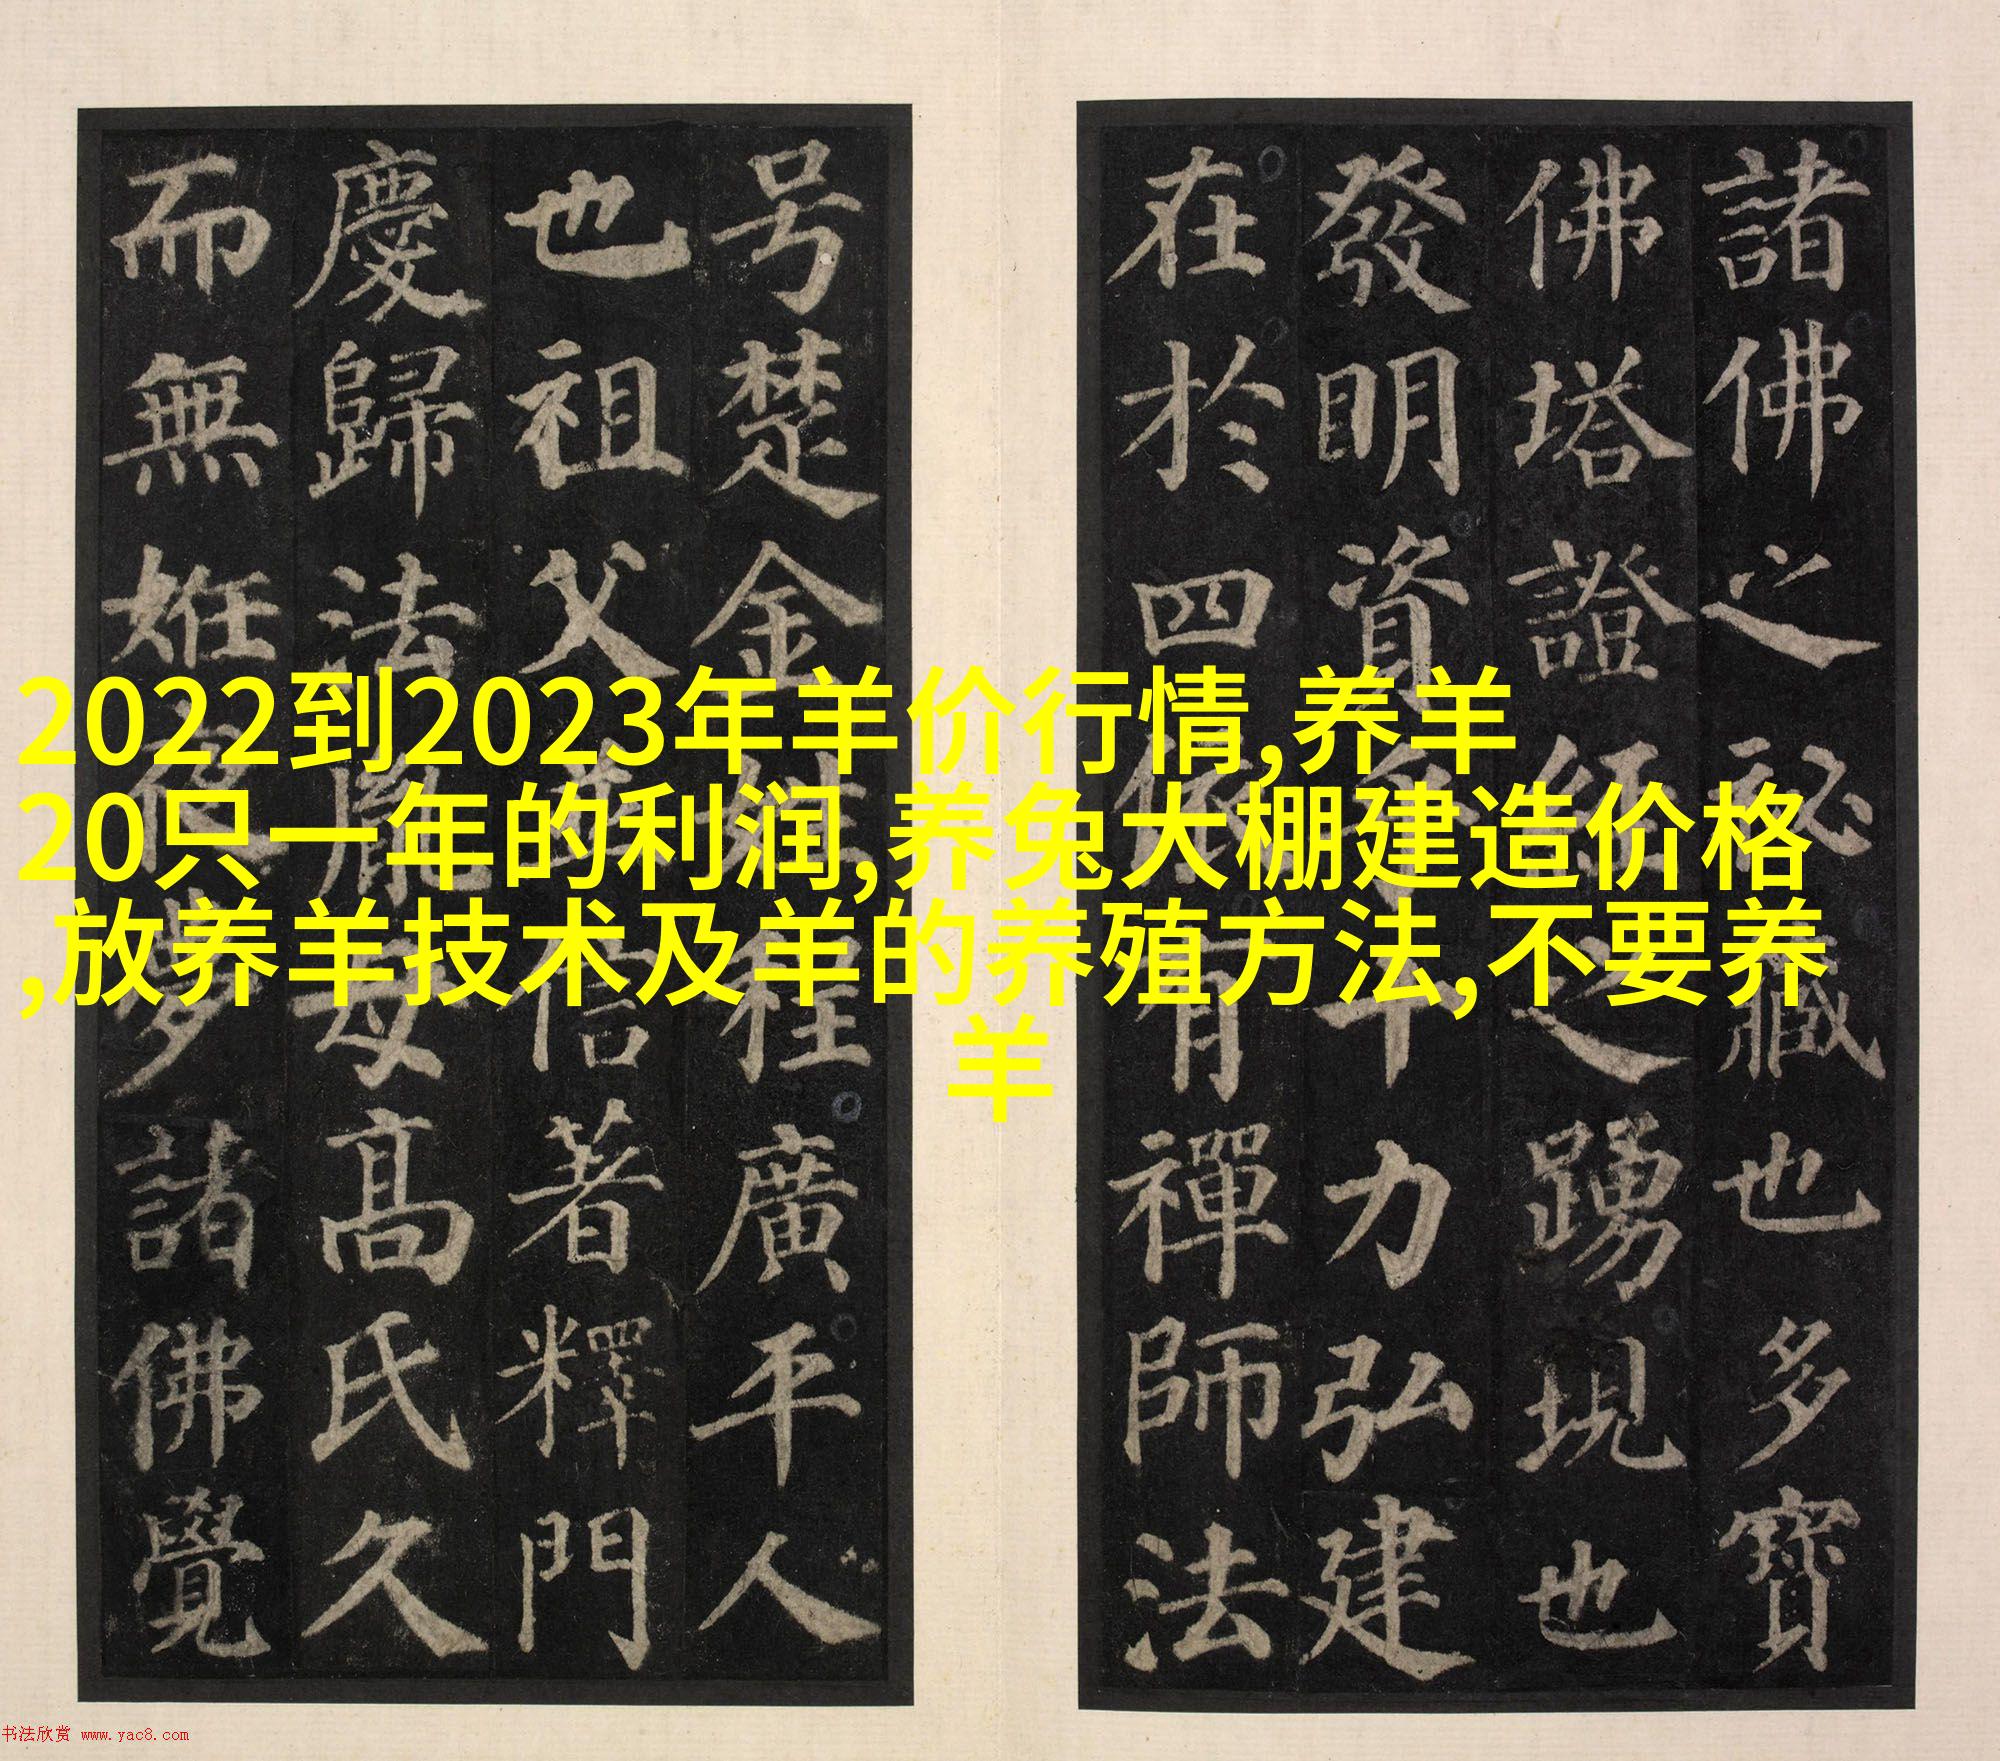 諸佛之祕藏也多寶
佛塔證經之踴現也
發明資乎十力弘建
在於四依有禪師法
号楚金姓程廣平人
也祖父並信著釋門
慶歸法胤母高氏久
而無姙夜夢諸佛覺
2022到2023年羊价行情,养羊
20只一年的利润,养兔大棚建造价格
,放养羊技术及羊的养殖方法,不要养
羊
书法欣赏 www.yac8.com